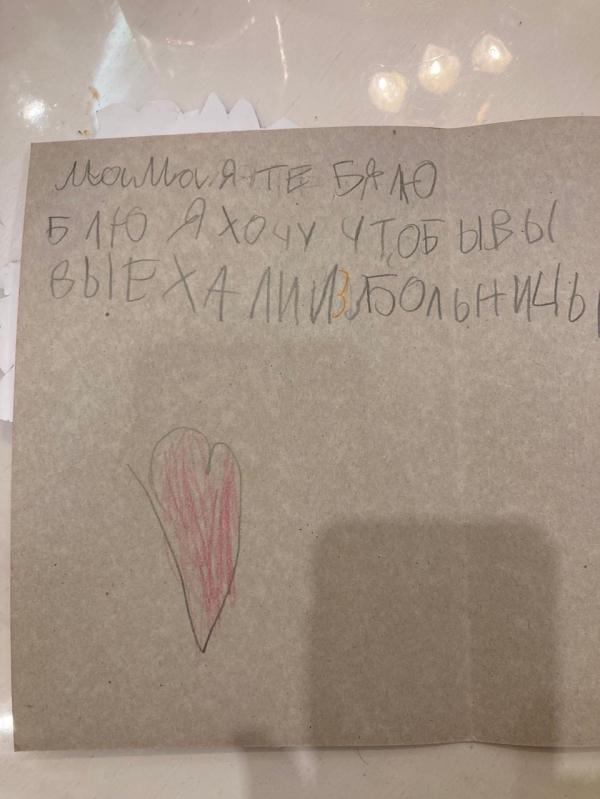 мама я те бялю
БЛЮ Я ХОЧУ ЧТОБ ЫВЫ
ВЫЕХАЛИ ИЗ БОЛЬНИЧЫ